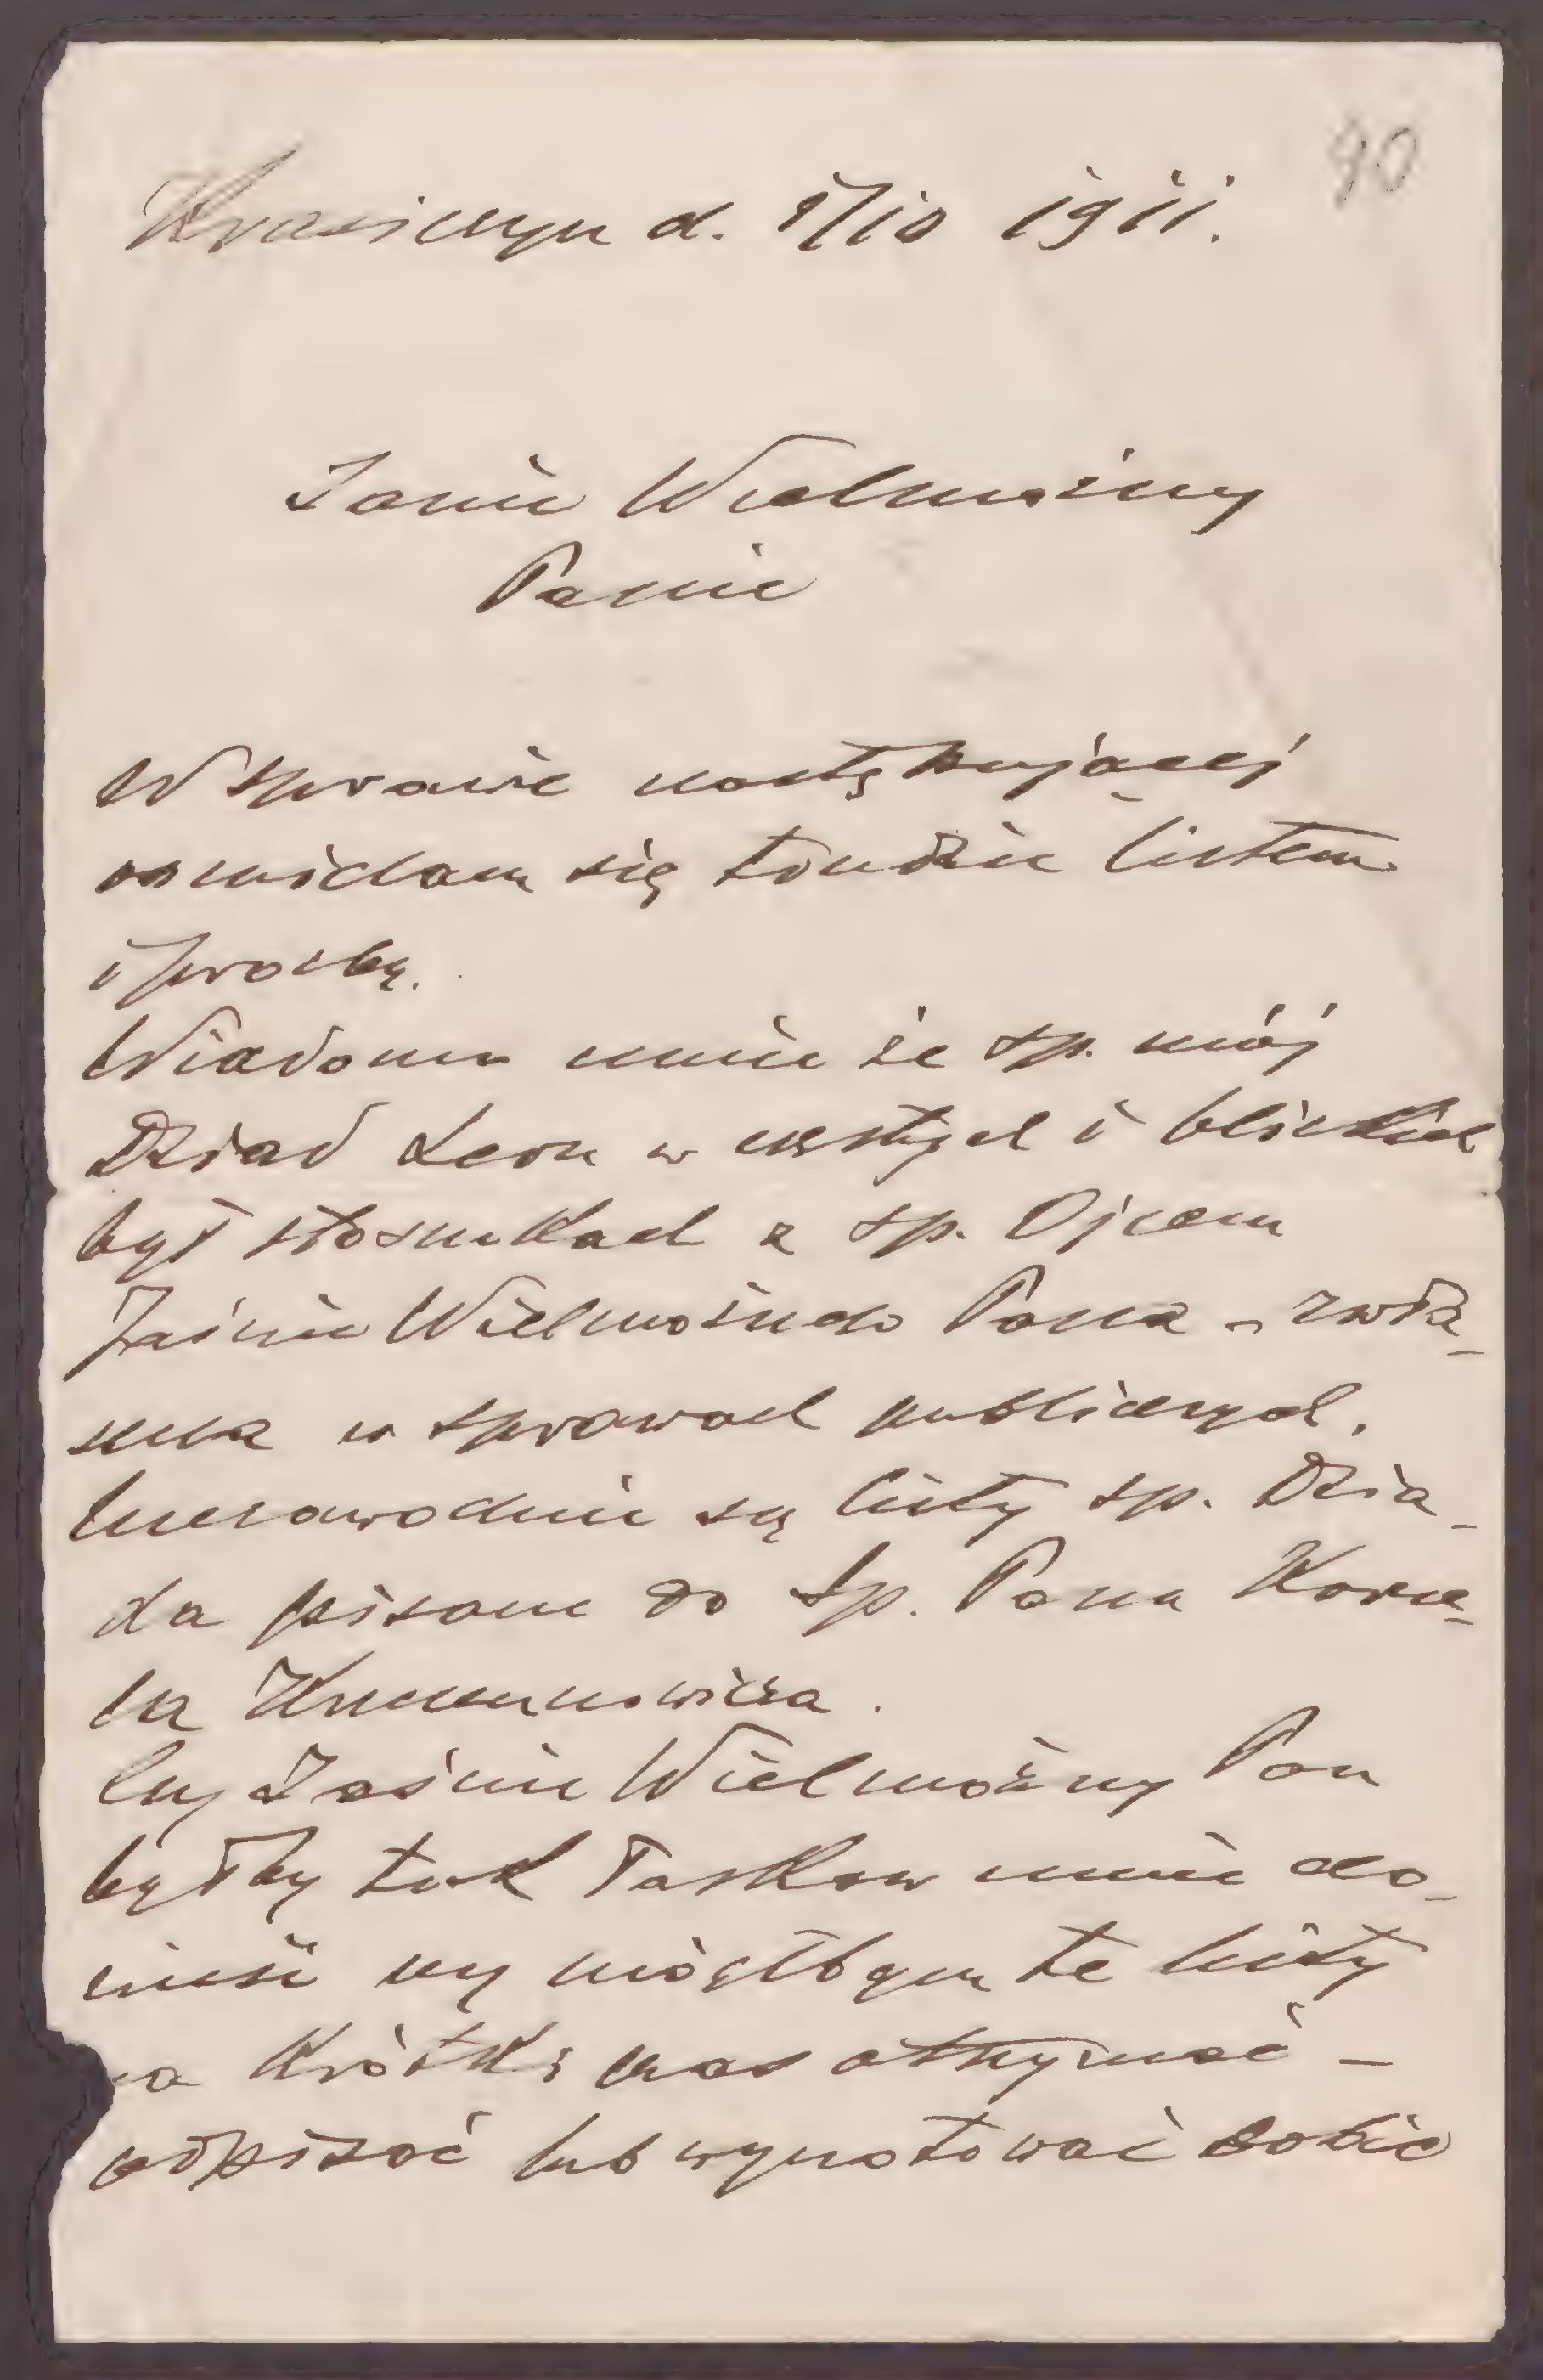 90
Krasiczyn d. 1/10 1911.
Jaśnie Wielmożny
Panie
W sprawie następującej
ośmielam się trudzić listem
i prośbą.
Wiadomo mnie że śp. mój
Dziad Leon w częstych i bliskich
był stosunkach z śp. Ojcem
Jaśnie Wielmożnego Pana – zwła-
szcza w sprawach publicznych.
Niezawodnie są listy śp. Dzia-
da pisane do śp. Pana Korne-
la Krzeczunowicza.
Czy Jaśnie Wielmożny Pan
byłby tak łaskaw mnie do-
nieść czy mógłbym te listy
na krótki czas otrzymać –
odpisać lub wynotować sobie